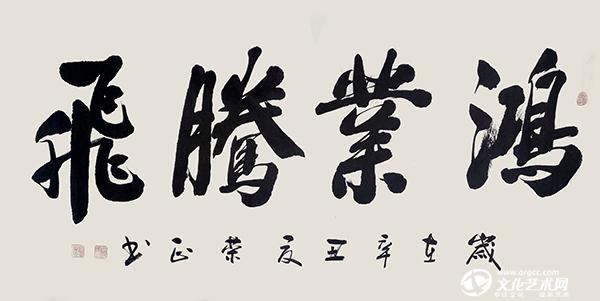 鴻業騰飛
歲在辛丑夏荣正书
文化艺术网
www.orgcc.com